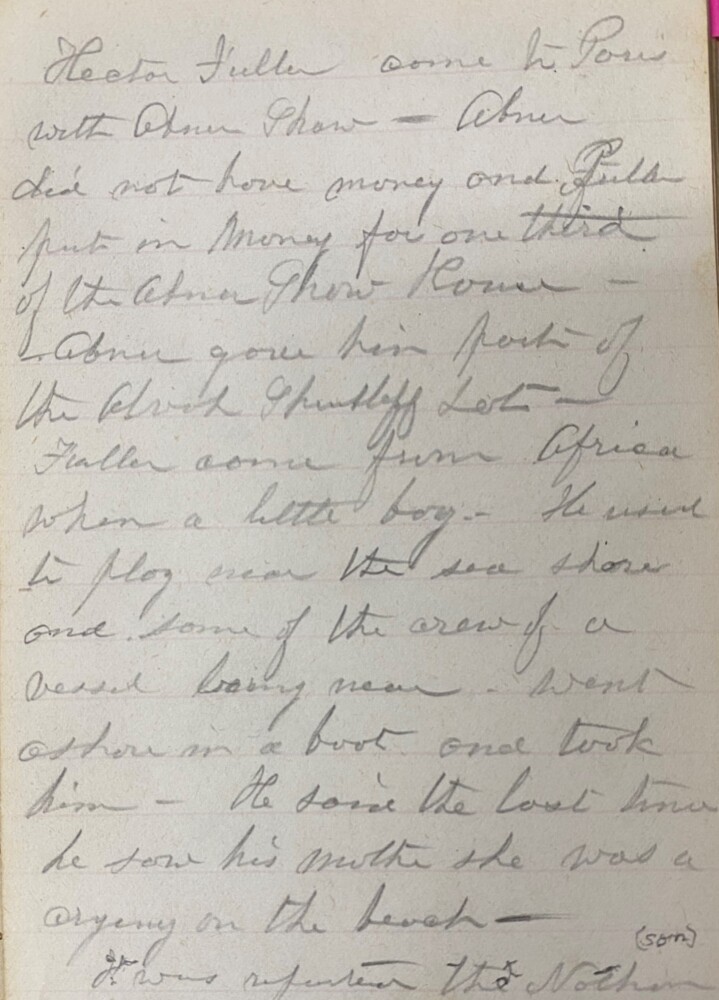 Hector Fuller come to Paris
with Abner Shaw — Abner
did not have money and Fuller
put in Money for one third
of the Abner Shaw House —
— Abner gave him part of
the Alvah Shurtleff Lot —
Fuller come from Africa
when a little boy. — He used
to play near the sea shore
and some of the crew of a
vessel being near - went
ashore in a boat and took
him — He said the last time
he saw his mother she was a
crying on the beach —
(son)
It was reported that Nathan